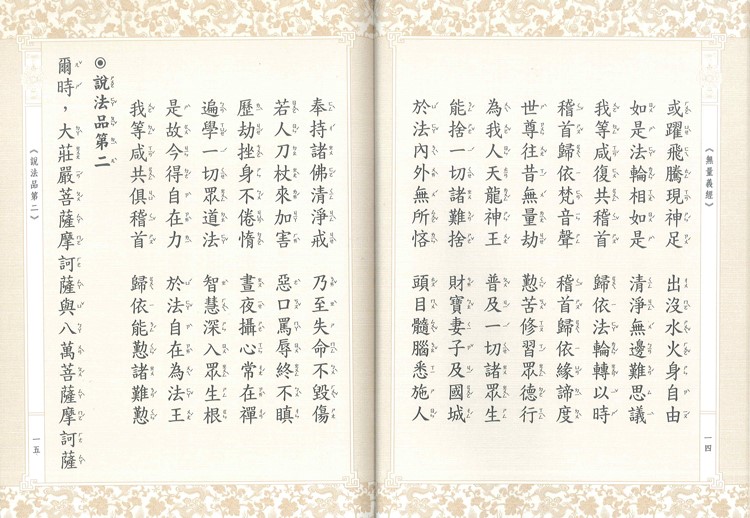 《無量義經》
或躍飛騰現神足 出沒水火身自由
如是法輪相如是 清淨無邊難思議
我等咸復共稽首 歸依法輪轉以時
稽首歸依梵音聲 稽首歸依緣諦度
世尊往昔無量劫 懃苦修習眾德行
為我人天龍神王 普及一切諸眾生
能捨一切諸難捨 財寶妻子及國城
於法內外無所悋 頭目髓腦悉施人
一四
奉持諸佛清淨戒 乃至失命不毀傷
若人刀杖來加害 惡口罵辱終不瞋
歷劫挫身不倦惰 晝夜攝心常在禪
遍學一切眾道法 智慧深入眾生根
是故今得自在力 於法自在為法王
我等咸共俱稽首 歸依能懃諸難懃
◉說法品第二
爾時，大莊嚴菩薩摩訶薩與八萬菩薩摩訶薩
《說法品第二》
一五